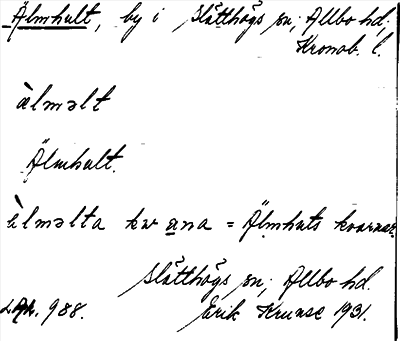 Älmhult, by i Slätthögs sn; Allbo hd,
Kronob. l.
àlməlt
Älmhult.
èlməlta kwana = Älmhuts kvarnar
Slätthögs sn; Allbo hd.
988. Erik Krusse 1931.